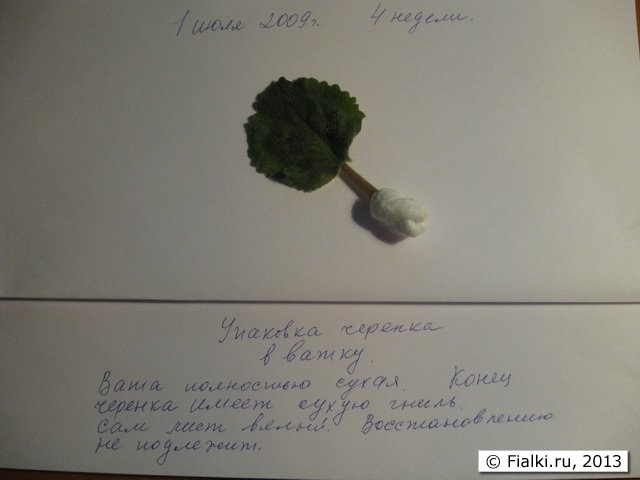 1 июля 2009г. 4 недели.
Упаковка черенка
в ватку.
Вата полностью сухая. Конец
черенка имеет сухую гниль.
Сам лист вялый. Восстановлению
не подлежит.
© Fialki.ru, 2013